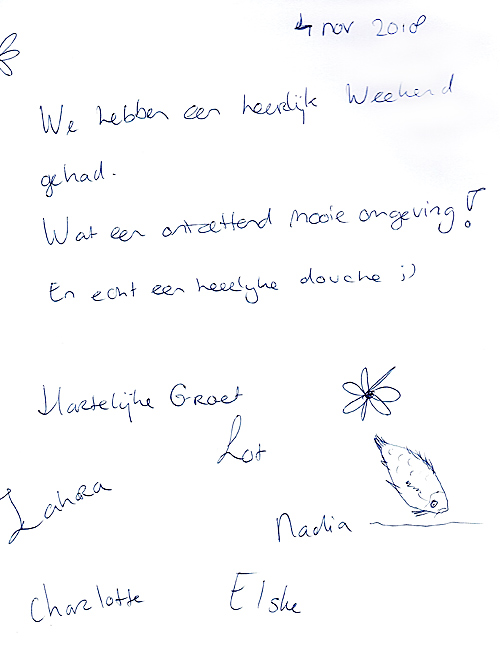 4 nov 2018
We hebben een heerlijk Weekend
gehad.
Wat een ontzettend mooie omgeving!
En echt een heeelijke douche ;)
Hartelijke Groet
Lot
Lahoza
Nadia
Charlotte
Elske